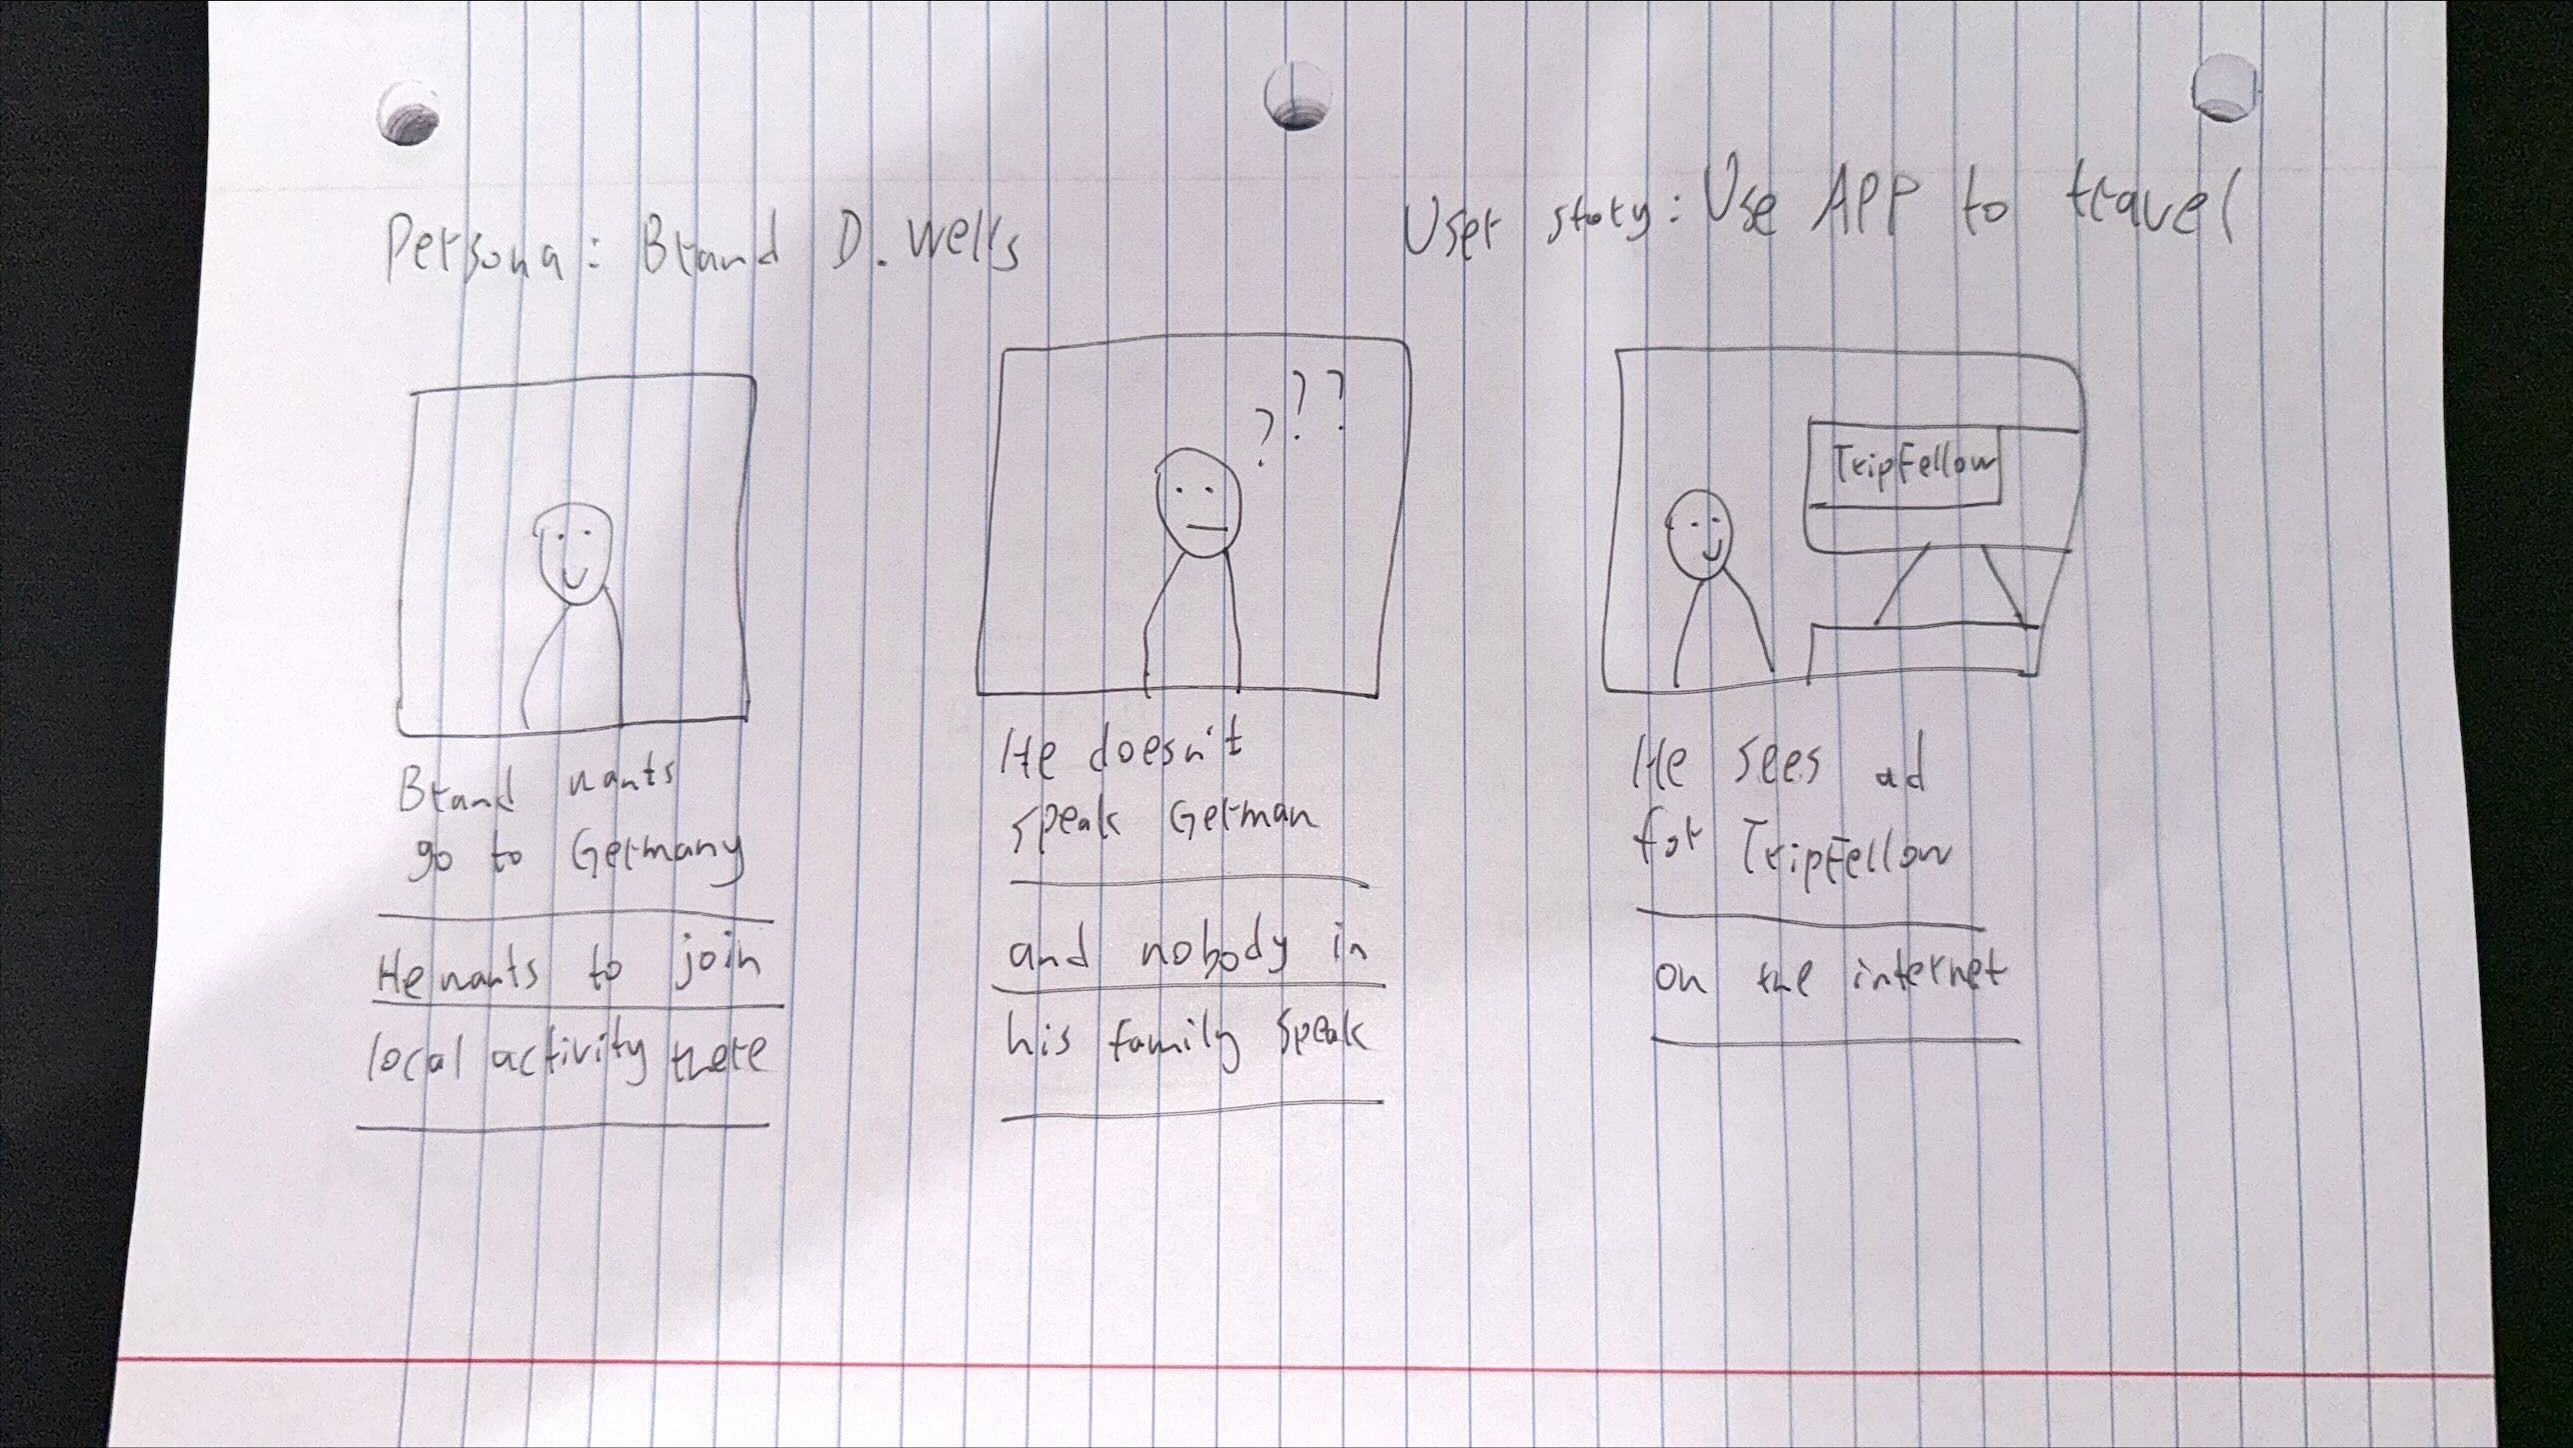 Persona: Brand D. Wells
User story: Use APP to travel
? ? ?
TripFellow
Brand wants
go to Germany
He wants to join
local activity there
He doesn't
speak German
and nobody in
his family speak
He sees ad
for TripFellow
on the internet